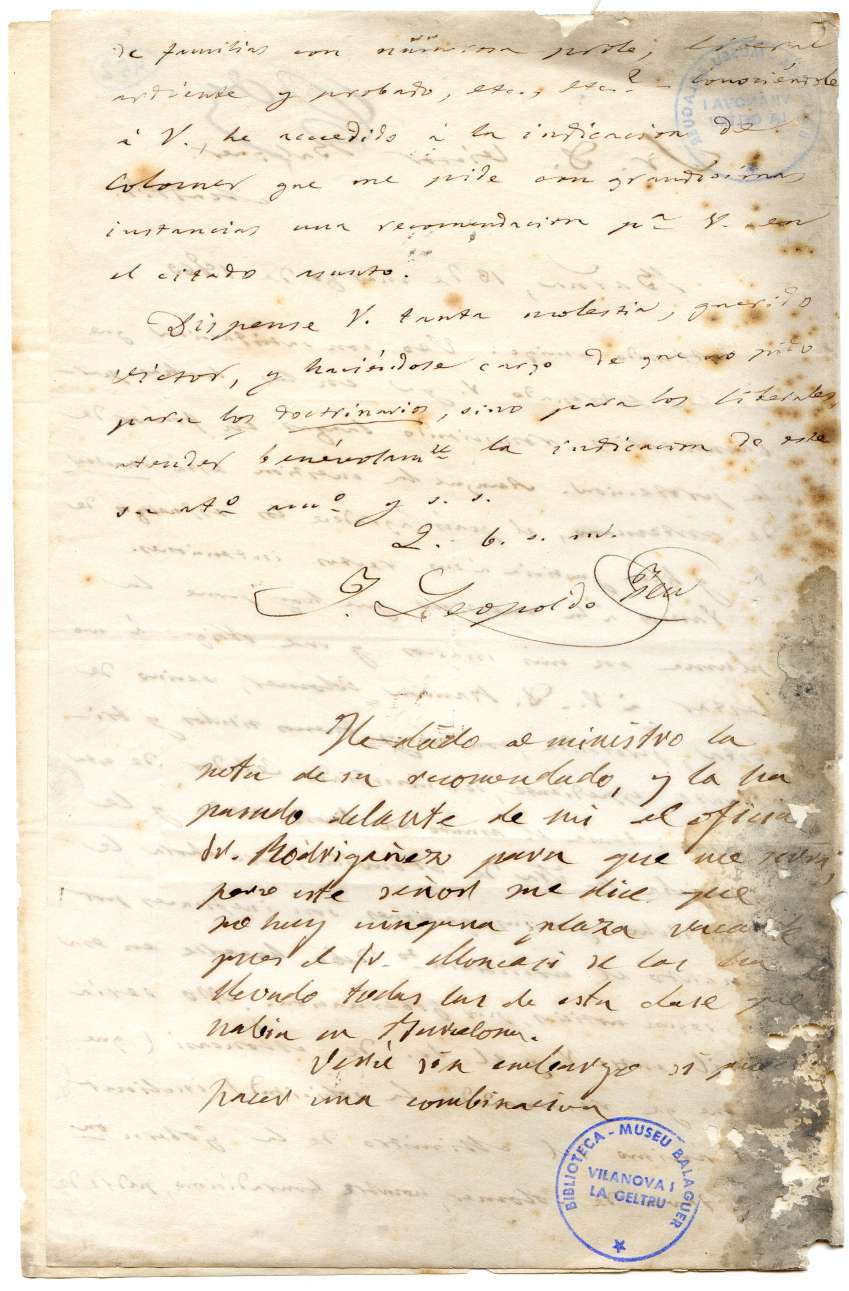 de familias con numerosa prole, liberal
ardiente y probado, etc., etc.ª - Conociéndole
á V., he accedido á la indicacion de
Colomer que me pide con grandísimas
instancias una recomendacion pª V. en
el citado asunto.
Dispense V. tanta molestia, querido
Victor, y haciéndose cargo de que no pido
para los doctrinarios, sino para los liberales,
atender benévolamte la indicacion de este
su atº amº y s. s.
Q. b. s. m.
J. Leopoldo Feu
He dado al ministro la
nota de su recomendado, y la ha
pasado delante de mi el oficial
Sr. Rodrigañez para que me sirva;
pero este señor me dice que
no hay ninguna plaza vacante
pues el Sr. Moncasi se las ha
llevado todas las de esta clase que
habia en Barcelona.
Veré sin embargo si puedo
hacer una combinacion
BIBLIOTECA - MUSEU BALAGUER
VILANOVA I
LA GELTRU